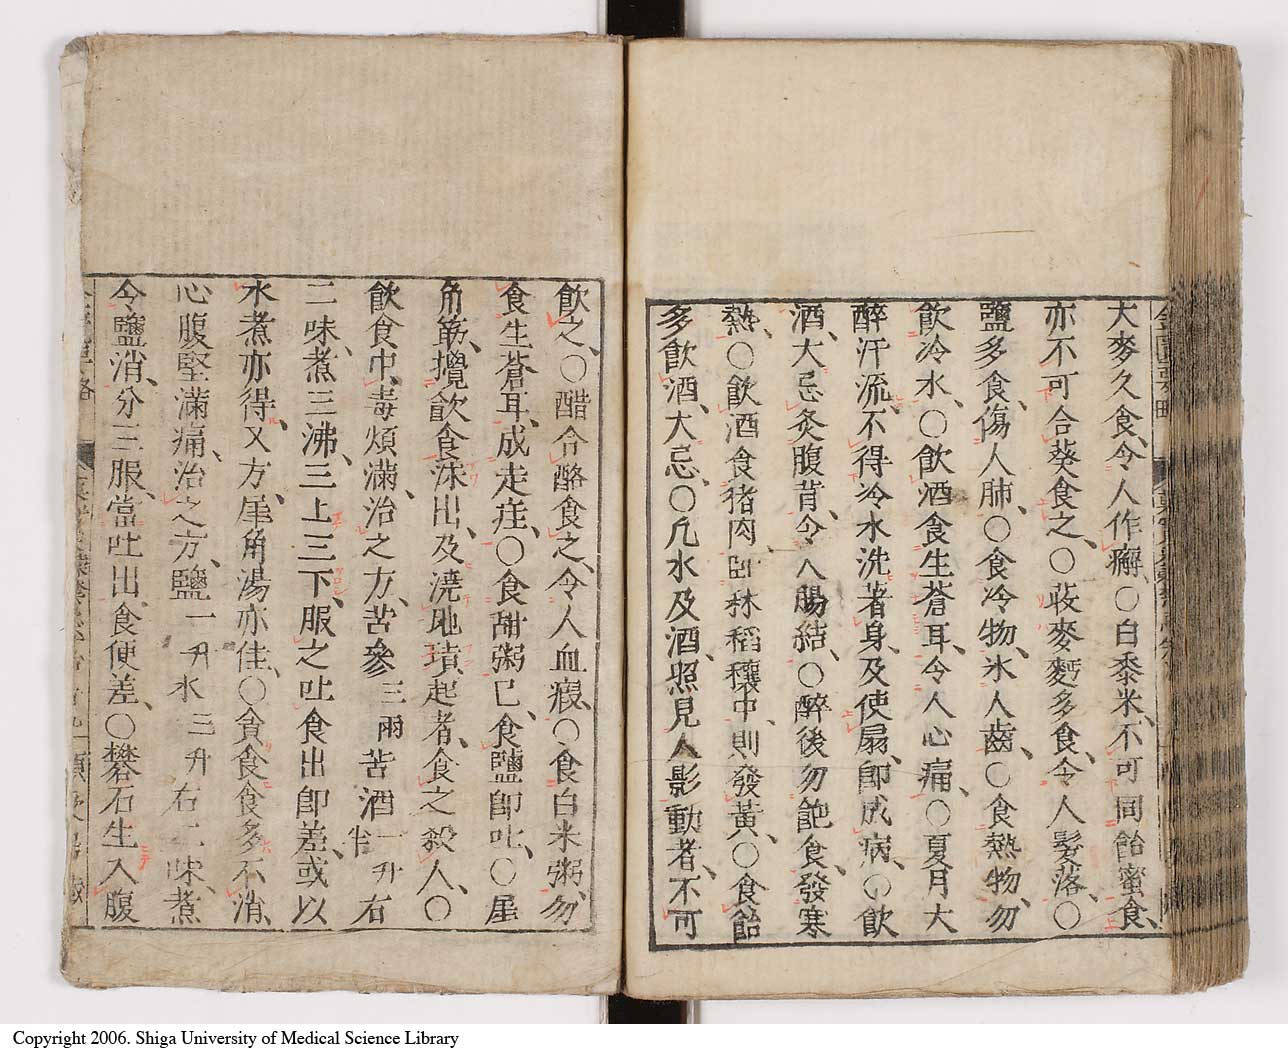 大麥久食、令人作癬、○白黍米、不可同飴蜜食、
亦不可合葵食之、○荍麥麪多食、令人髮落、○
鹽多食、傷人肺、○食冷物、氷人齒、○食熱物、勿
飮冷水、○飮酒食生蒼耳、令人心痛、○夏月大
醉汗流、不得冷水洗著身、及使扇、卽成病、○飮
酒、大忌灸腹背、令人腸結、○醉後勿飽食、發寒
熱、○飮酒食猪肉、臥秫稻穰中、則發黃、○食飴
多飮酒、大忌、○凡水及酒、照見人影動者、不可
飮之、○醋合酪食之、令人血瘕、○食白米粥、勿
食生蒼耳、成走疰、○食甜粥已、食鹽卽吐、○犀
角筯、攪飮食沫出、及澆地墳起者、食之殺人、○
飮食中、毒煩滿、治之方、苦參三兩苦酒一升半右
二味、煮三沸、三上三下、服之吐食出卽差、或以
水煮亦得、又方、犀角湯亦佳、○貪食食多不消、
心腹堅滿痛、治之方、鹽一升水三升右二味、煮
令鹽消、分三服、當吐出、食便差、○礬石生入腹
Copyright 2006. Shiga University of Medical Science Library